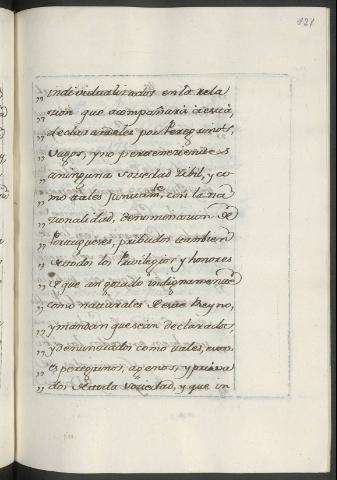 121
,, individualizados en la rela
,, zion que acompañará à esta,
,, declarandoles por Peregrinos,
,, Vagos, y no pertenecientes
,, à ninguna Sociedad Zibil, y co
,, mo tales juntam.te, con la na
,, zionalidad, denominazion de
,, Portugueses, pribados tambien
,, de todos los Privilegios y honores
,, de que an gozado indignamente
,, como naturales de este Reyno,
,, y mandan que sean declarados,
,, y denunciados como tales,
,, peregrinos, agenos, y priva
,, dos de toda Sociedad, y que in